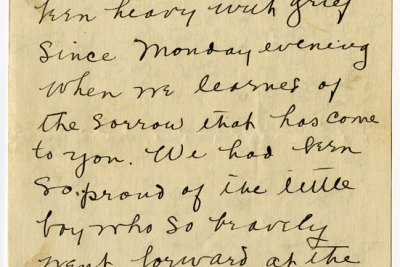 been heavy with grief
Since Monday evening
when we learned of
the sorrow that has come
to you. We had been
so proud of the little
boy who so bravely
went forward at the